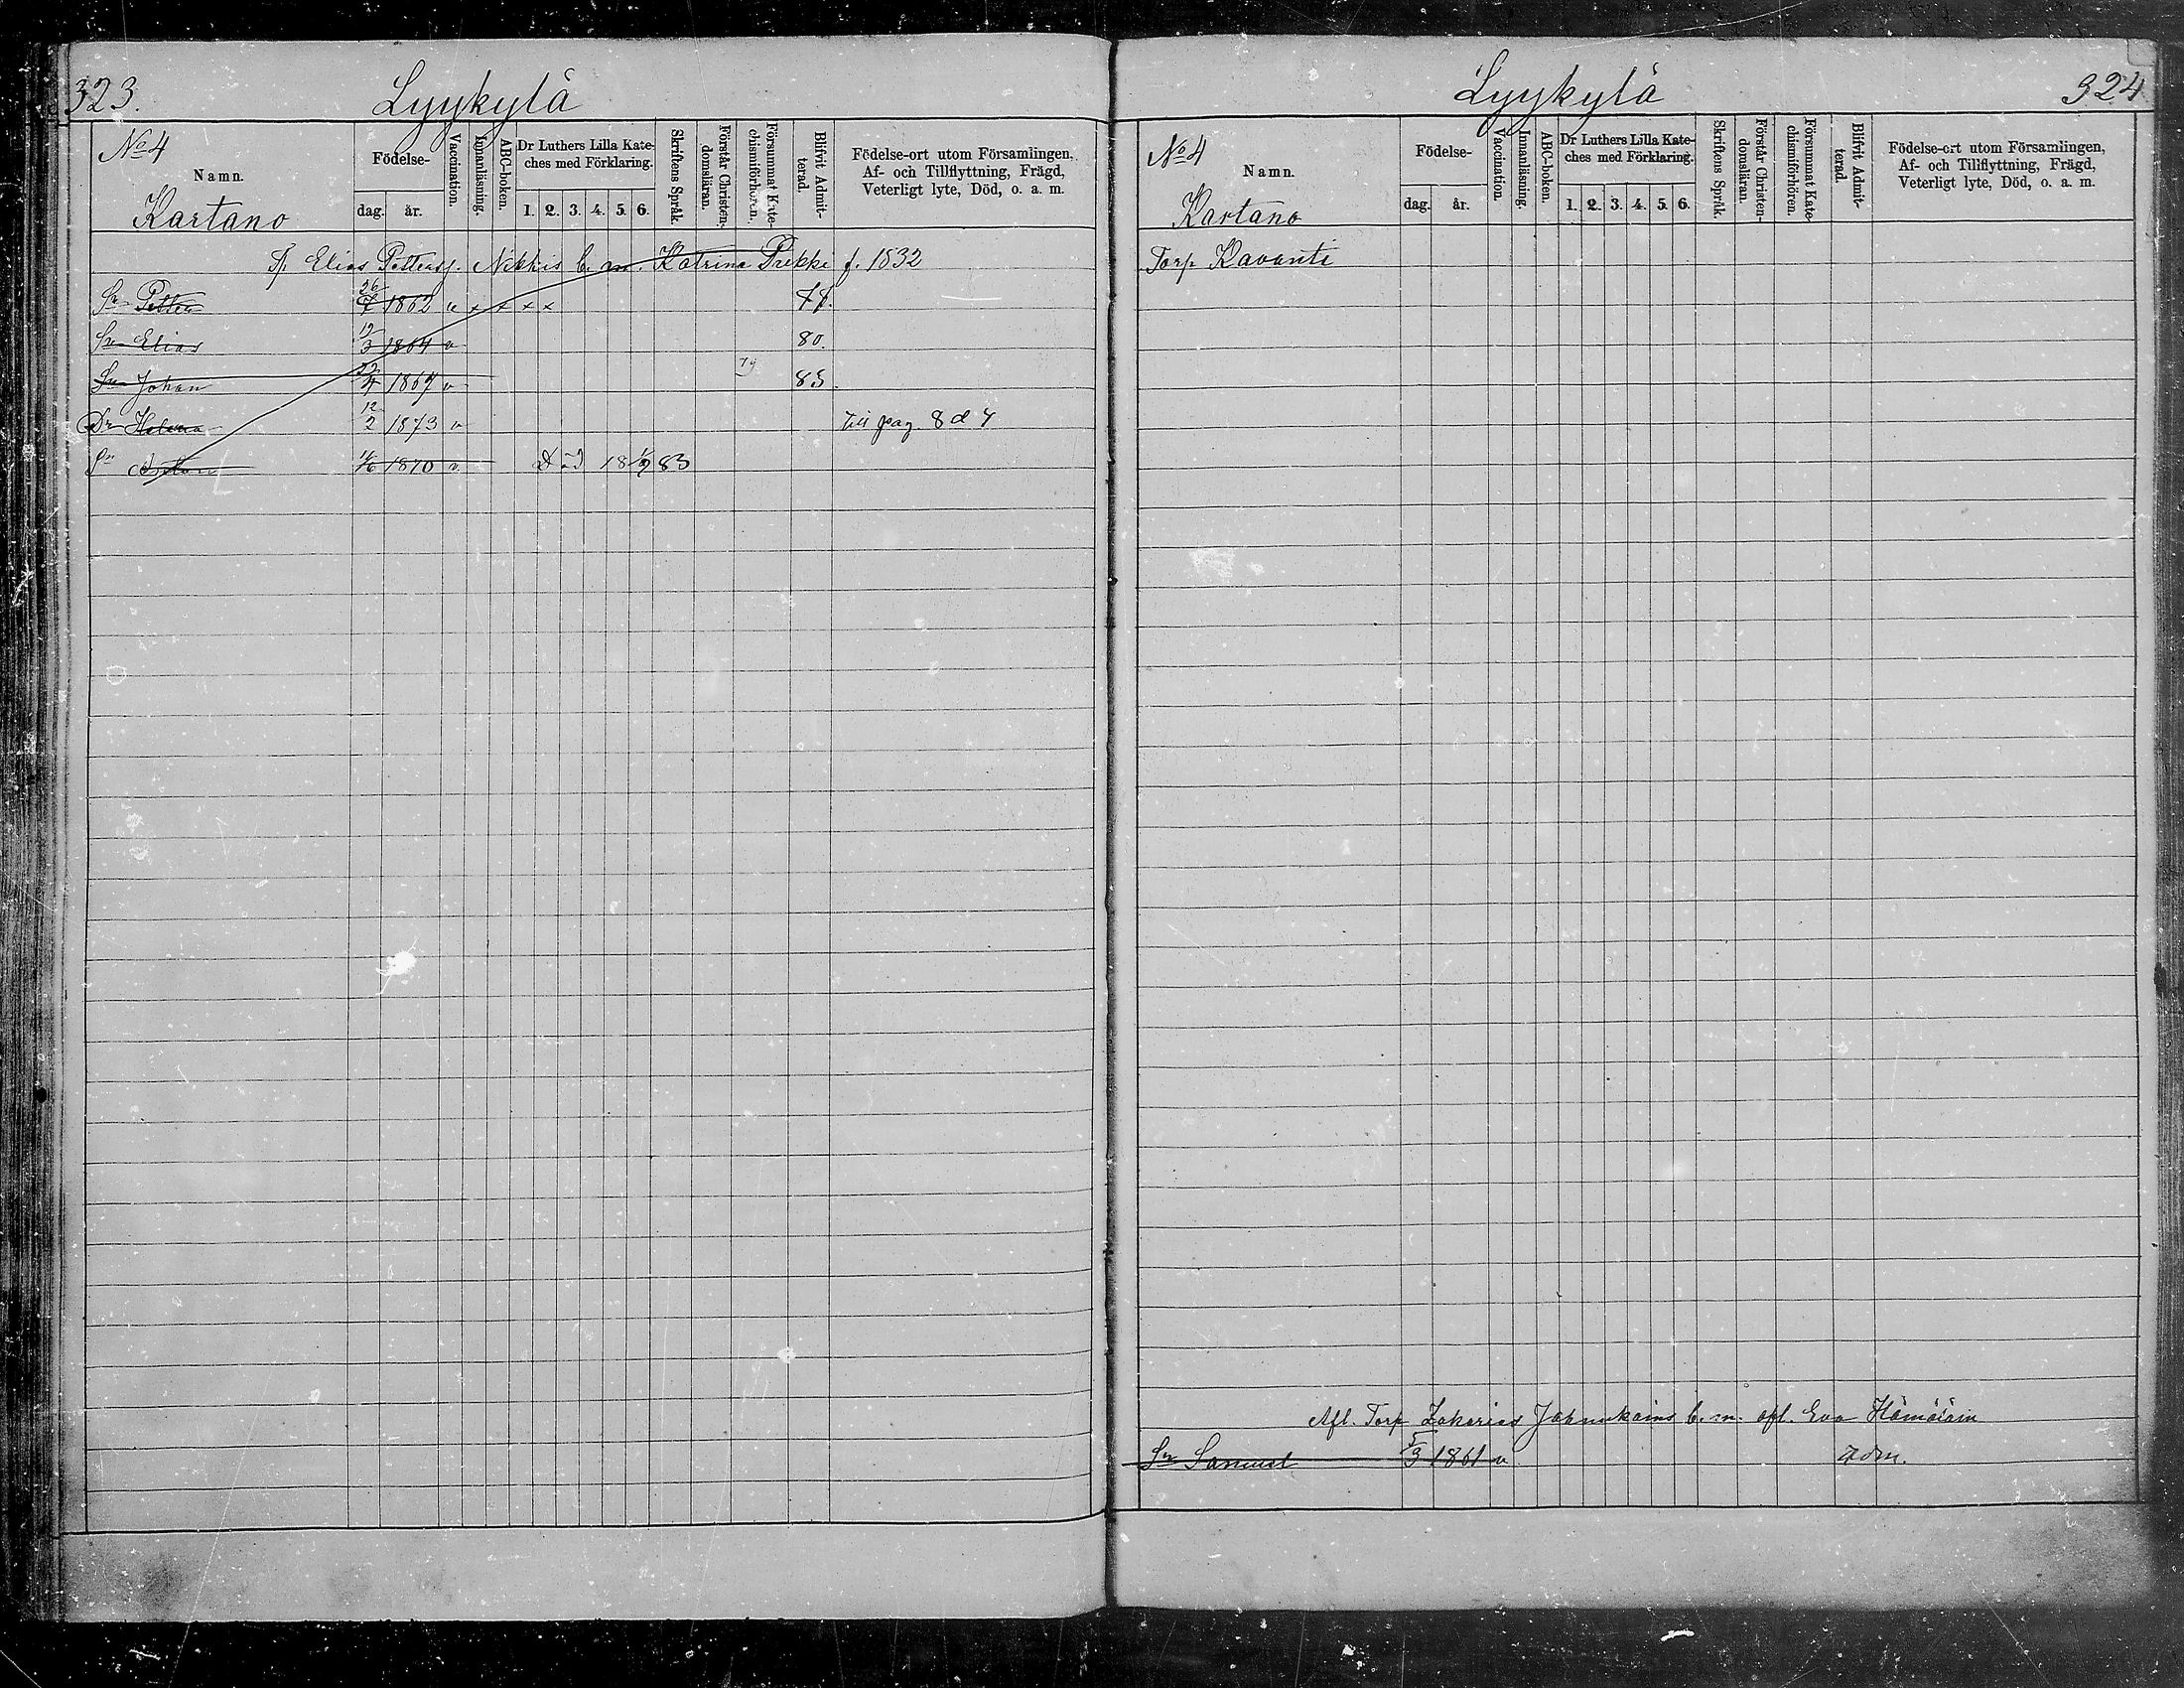 323.
Lyykylä
No 4
Namn.
Kartano
Födelse-
dag. år.
Vaccination.
Innanläsning.
ABC-boken.
Dr Luthers Lilla Kate-
ches med Förklaring.
1. 2. 3. 4. 5. 6.
Skriftens Språk.
Förstår Christen-
domsläran.
Försummat Kate-
chismiförhören.
Blifvit Admit-
terad.
Födelse-ort utom Församlingen,
Af- och Tillflyttning, Frägd,
Veterligt lyte, Död, o. a. m.
Elias Pettersp. Nikkis b. m. Katrina Prekke f. 1832
Sn Petter 26/7 1862 v x x x x 77.
Sn Elias 19/3 1864 v 80.
Sn Johan 22/4 1867 v 79 85.
Dr Helena 12/2 1873 v till pag 8 d 4
Sn Anton 1870 v Död 83
Lyykylä
324
No 4
Namn.
Kartano
Födelse-
dag. år.
Vaccination.
Innanläsning.
ABC-boken.
Dr Luthers Lilla Kate-
ches med Förklaring.
1. 2. 3. 4. 5. 6.
Skriftens Språk.
Förstår Christen-
domsläran.
Försummat Kate-
chismiförhören.
Blifvit Admit-
terad.
Födelse-ort utom Församlingen,
Af- och Tillflyttning, Frägd,
Veterligt lyte, Död, o. a. m.
Torp Kavanti
Afl. Torp Zakarias Jahnukains b. m. afl. Eva Hämäläin
Sn Samuel 5/3 1861 v adm.